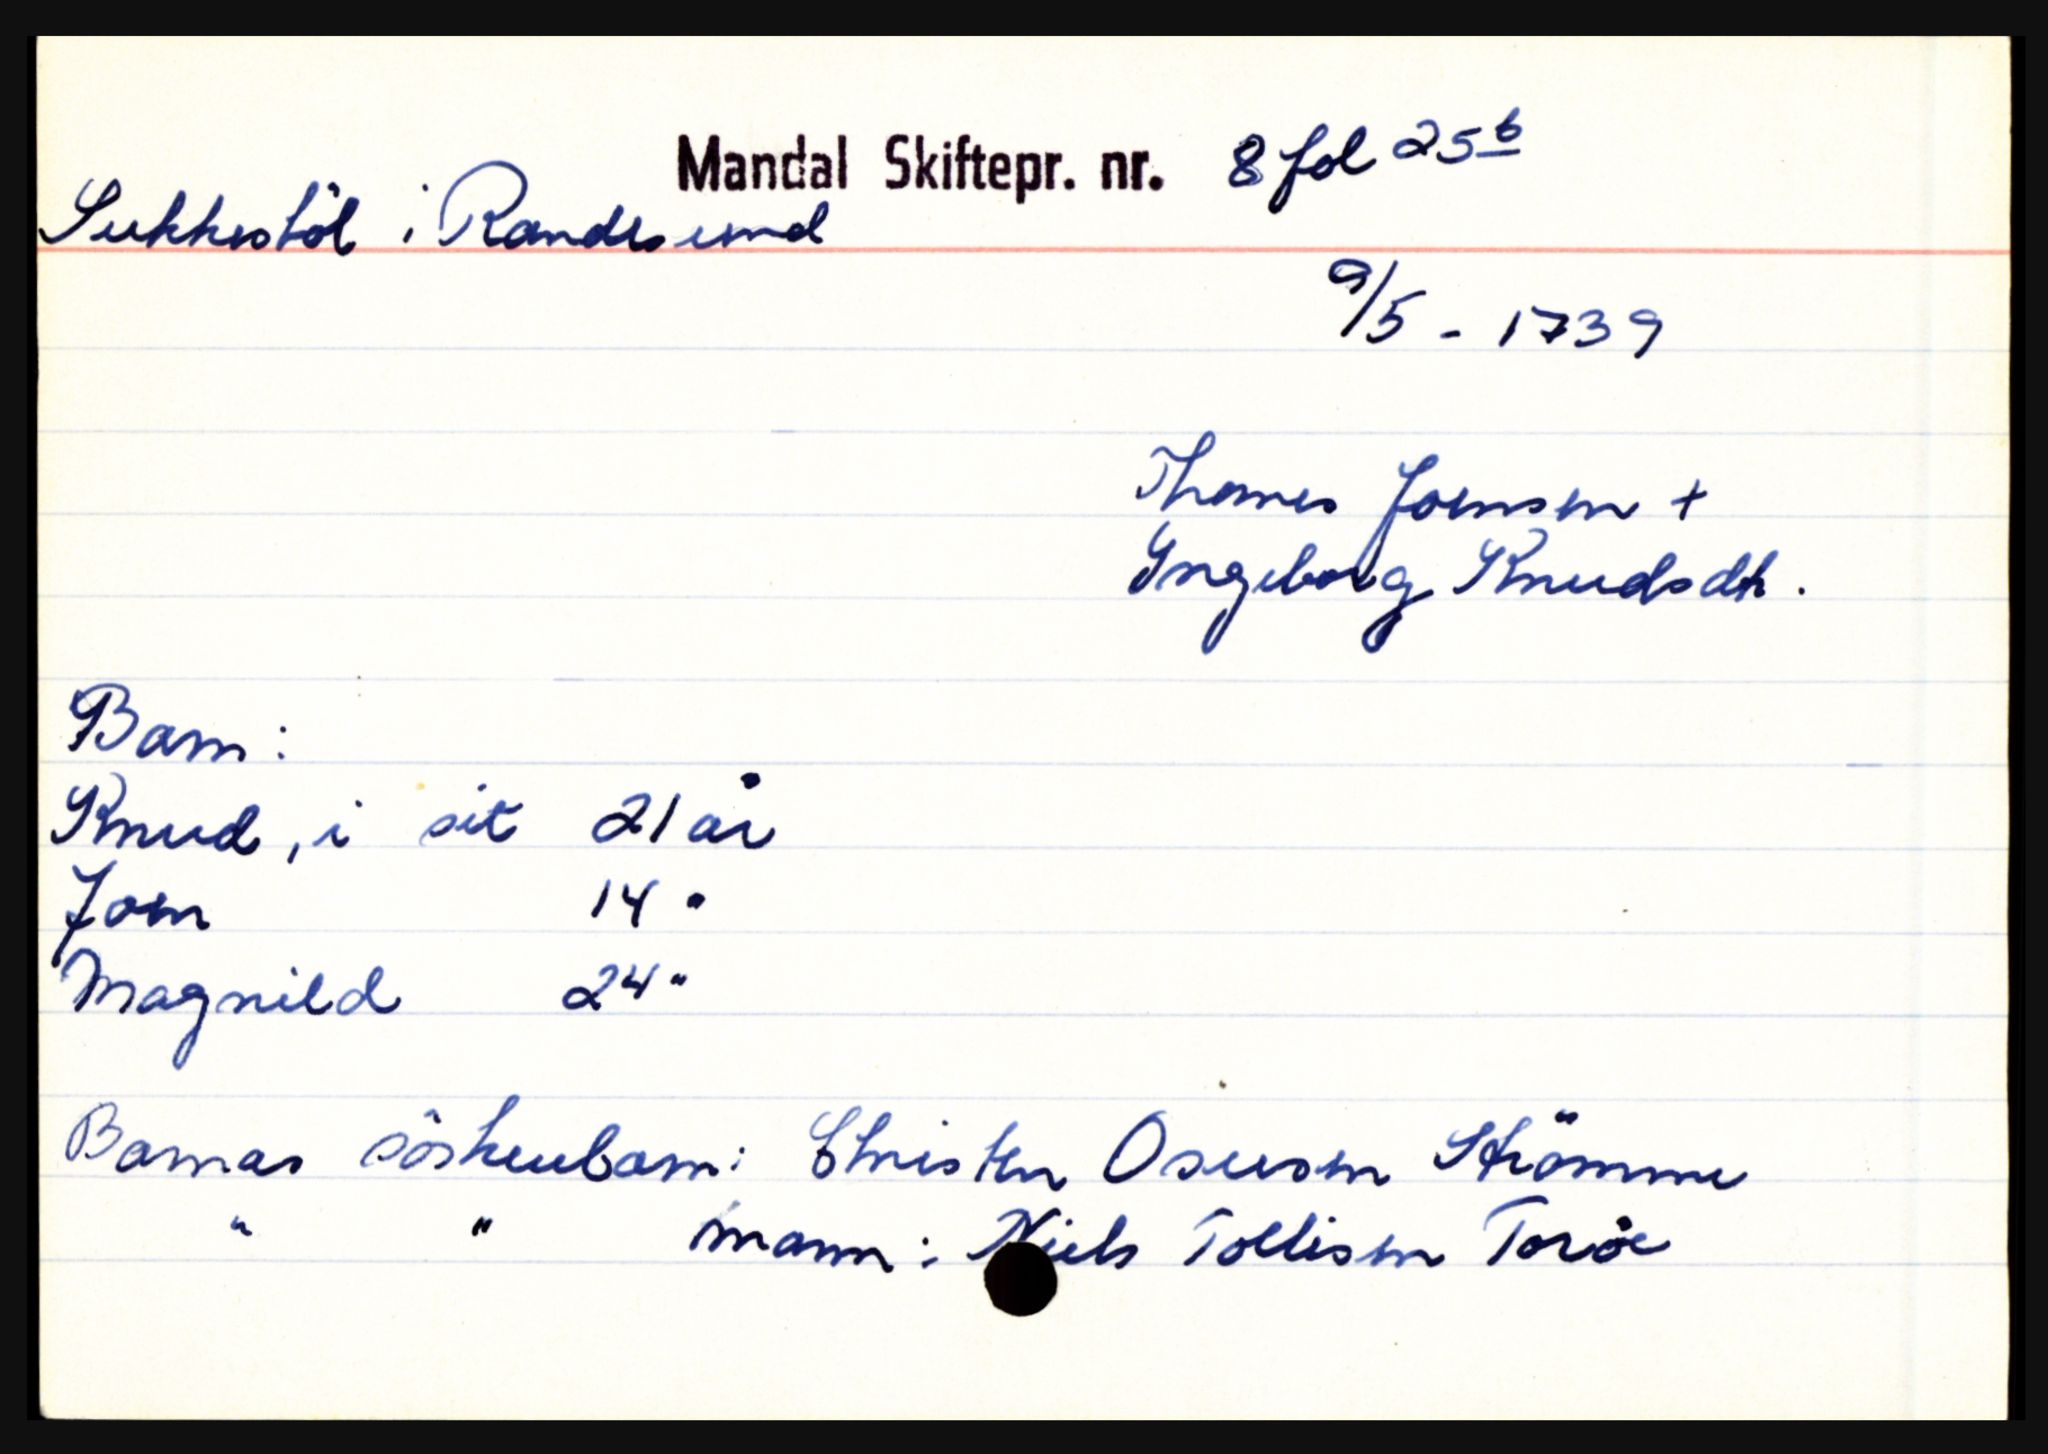 Mandal Skiftepr. nr. 8 fol 25b
Sukkestöl i Randesund
9/5 - 1739
Thomes Jornsen +
Ingeborg Knudsdtr.
Barn:
Knud, i sit 21 år
Jorn 14 "
Magnild 24 "
Barnas söskenbarn: Christen Osuldsen Strömme
" " mann: Niels Tollisen Toröe